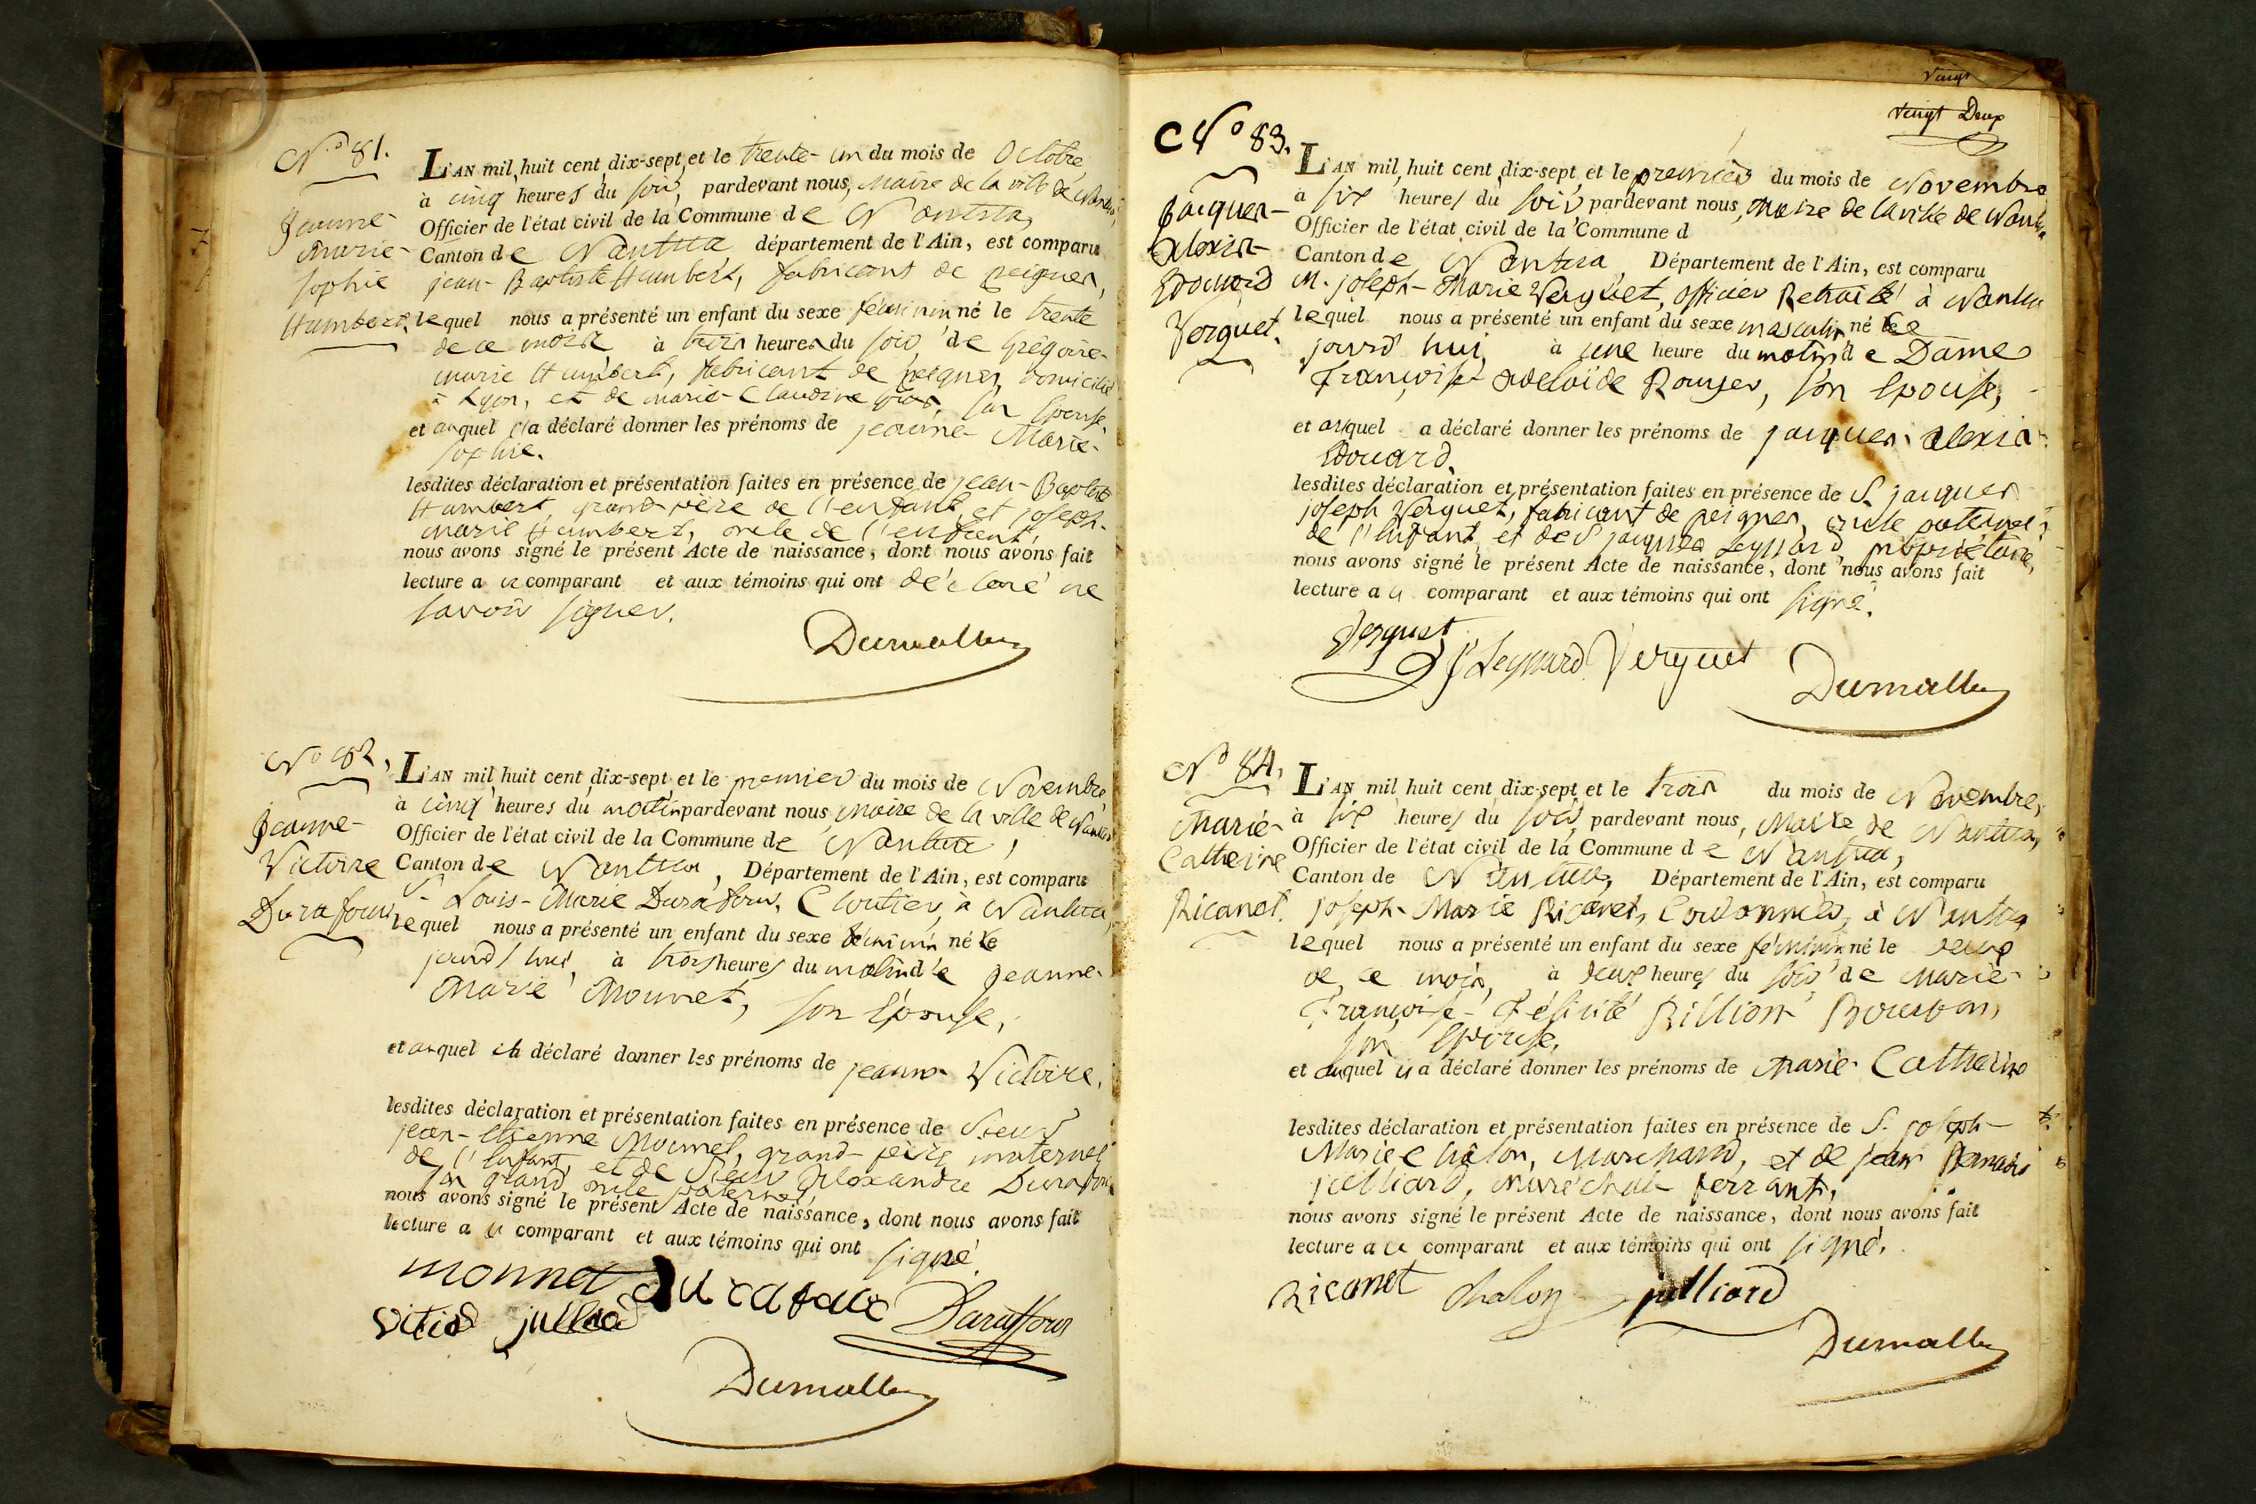 N.º 81.
Jeanne-
Marie-
Sophie
Humbert.
L'AN mil huit cent dix-sept et le trente-un du mois de Octobre
à cinq heures du soir, pardevant nous, Maire de la ville de Nantua,
Officier de l'état civil de la Commune de Nantua,
Canton de Nantua département de l'Ain, est comparu
jean-Baptiste Humbert, fabricant de peignes,
lequel nous a présenté un enfant du sexe féminin né le trente
de ce mois à trois heures du soir de Grégoire-
Marie Humbert, fabricant de peignes, domicilié
à Lyon, et de Marie-Claudine son Epouse,
et auquel il a déclaré donner les prénoms de jeanne-Marie-
Sophie.
lesdites déclaration et présentation faites en présence de jean-Baptiste
Humbert, grand-père de l'enfant, et joseph-
Marie Humbert, oncle de l'enfant,
nous avons signé le présent Acte de naissance, dont nous avons fait
lecture a ce comparant et aux témoins qui ont déclaré ne
savoir signer.
Dumalle
N.º 82,
Jeanne-
Victoire
Durafour
L'AN mil huit cent dix-sept et le premier du mois de Novembre
à cinq heures du matin pardevant nous, Maire de la ville de Nantua
Officier de l'état civil de la Commune de Nantua,
Canton de Nantua, Département de l'Ain, est comparu
S.r Louis-Marie Durafour, Cloutier, à Nantua,
lequel nous a présenté un enfant du sexe féminin né le
jourd'hui à trois heures du matin de Jeanne-
Marie Mounet, son Epouse,
et auquel il a déclaré donner les prénoms de jeanne Victoire.
lesdites déclaration et présentation faites en présence de Sieur
jean-Etienne Mounet, grand-père maternel
de l'Enfant, et de Sieur Alexandre Durafour
son grand oncle paternel,
nous avons signé le présent Acte de naissance, dont nous avons fait
lecture a ce comparant et aux témoins qui ont signé.
monnet durafour Duraffour
julliard
Dumalle
Vingt
Vingt Deux
N.º 83.
Jacques-
Alexis-
Edouard
Verguet.
L'AN mil huit cent dix-sept et le premier du mois de Novembre
à six heures du soir pardevant nous, Maire de la ville de Nantua
Officier de l'état civil de la Commune d
Canton de Nantua, Département de l'Ain, est comparu
M. joseph-Marie Verguet, officier Retraité à Nantua
lequel nous a présenté un enfant du sexe masculin né le
jourd'hui, à une heure du matin de Dame
Françoise Adelaïde Rouyer, son Epouse,
et auquel a déclaré donner les prénoms de jacques-Alexis-
Edouard.
lesdites déclaration et présentation faites en présence de S. jacques
joseph Verguet, fabricant de peignes, oncle paternel
de l'Enfant, et de S. jacques Leynard propriétaire,
nous avons signé le présent Acte de naissance, dont nous avons fait
lecture a ce comparant et aux témoins qui ont signé.
Verguet
Leynard Verguet
Dumalle
N.º 84,
Marie-
Catherine
Ricanet.
L'AN mil huit cent dix-sept et le trois du mois de Novembre,
à six heures du soir, pardevant nous, Maire de Nantua,
Officier de l'état civil de la Commune de Nantua,
Canton de Nantua, Département de l'Ain, est comparu
joseph-Marie Ricanet, Cordonnier, à Nantua
lequel nous a présenté un enfant du sexe féminin né le deux
de ce mois, à deux heures du soir de Marie-
Françoise-Félicité Billion Bourbon,
son Epouse,
et auquel il a déclaré donner les prénoms de Marie-Catherine
lesdites déclaration et présentation faites en présence de S. joseph-
Marie Châlon, Marchand, et de jean
julliard, Maréchal ferrant,
nous avons signé le présent Acte de naissance, dont nous avons fait
lecture a ce comparant et aux témoins qui ont signé.
Ricanet Chalon julliard
Dumalle